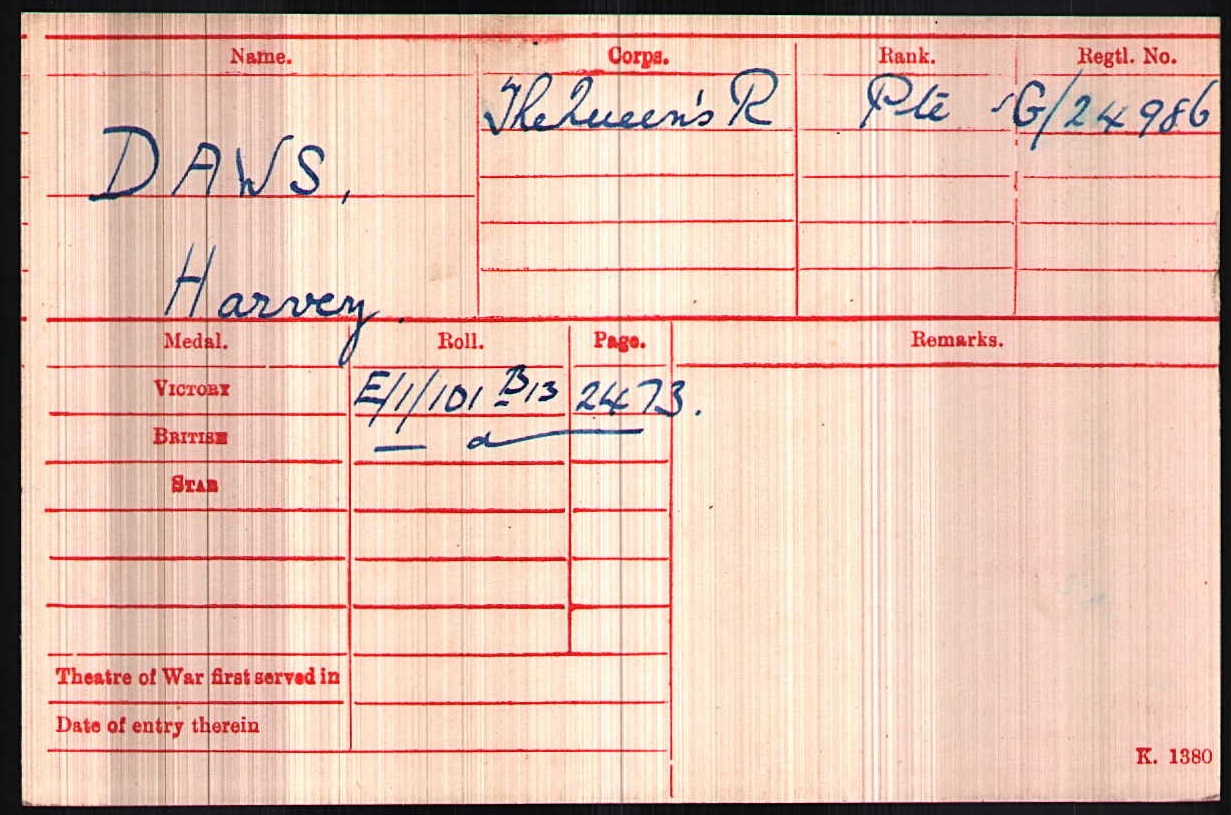 Name. Corps. Rank. Regtl. No.
The Queen's R Pte G/24986
DAWS,
Harvey.
Medal. Roll. Page. Remarks.
VICTORY E/1/101 B13 2473.
BRITISH
STAR
Theatre of War first served in
Date of entry therein
K. 1380